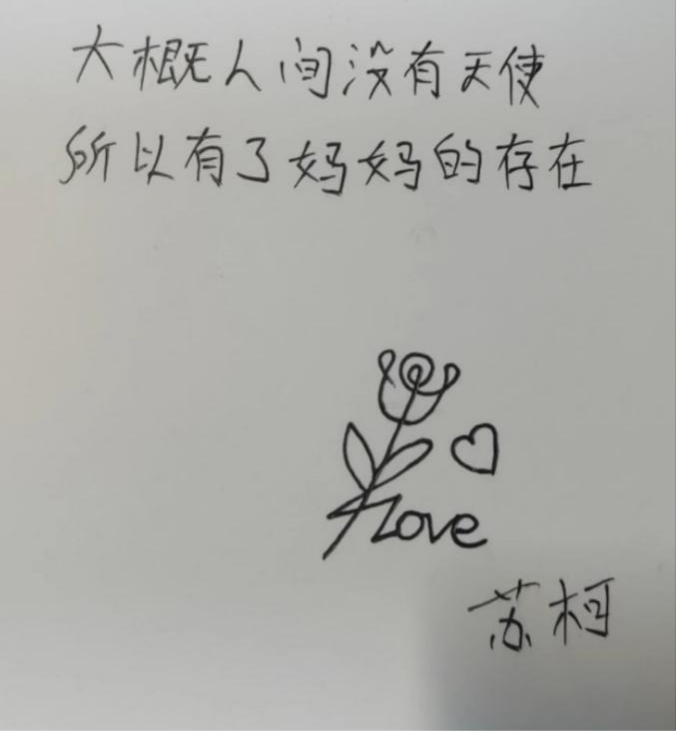 大概人间没有天使
所以有了妈妈的存在
love
苏柯